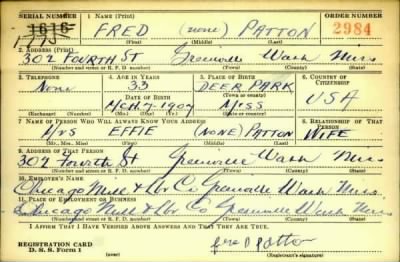 SERIAL NUMBER 1. NAME (Print) ORDER NUMBER
1616 FRED (none) PATTON 2984
(First) (Middle) (Last)
2. ADDRESS (Print)
302 FOURTH ST Greenville Wash Miss
(Number and street or R. F. D. number) (Town) (County) (State)
3. TELEPHONE 4. AGE IN YEARS 5. PLACE OF BIRTH 6. COUNTRY OF CITIZENSHIP
None 33 DEER PARK
DATE OF BIRTH (Town or county)
Mch 7-1907 Miss USA
(Exchange) (Number) (Mo.) (Day) (Yr.) (State or country)
7. NAME OF PERSON WHO WILL ALWAYS KNOW YOUR ADDRESS 8. RELATIONSHIP OF THAT PERSON
Mrs EFFIE (NONE) PATTON WIFE
(Mr., Mrs., Miss) (First) (Middle) (Last)
9. ADDRESS OF THAT PERSON
302 Fourth St Greenville Wash Miss
(Number and street or R. F. D. number) (Town) (County) (State)
10. EMPLOYER'S NAME
Chicago Mill & Lbr Co Greenville Wash Miss
11. PLACE OF EMPLOYMENT OR BUSINESS
Chicago Mill & Lbr Co Greenville Wash Miss
(Number and street or R. F. D. number) (Town) (County) (State)
I AFFIRM THAT I HAVE VERIFIED ABOVE ANSWERS AND THAT THEY ARE TRUE.
REGISTRATION CARD
D. S. S. Form 1 Patton
(Registrant's signature)